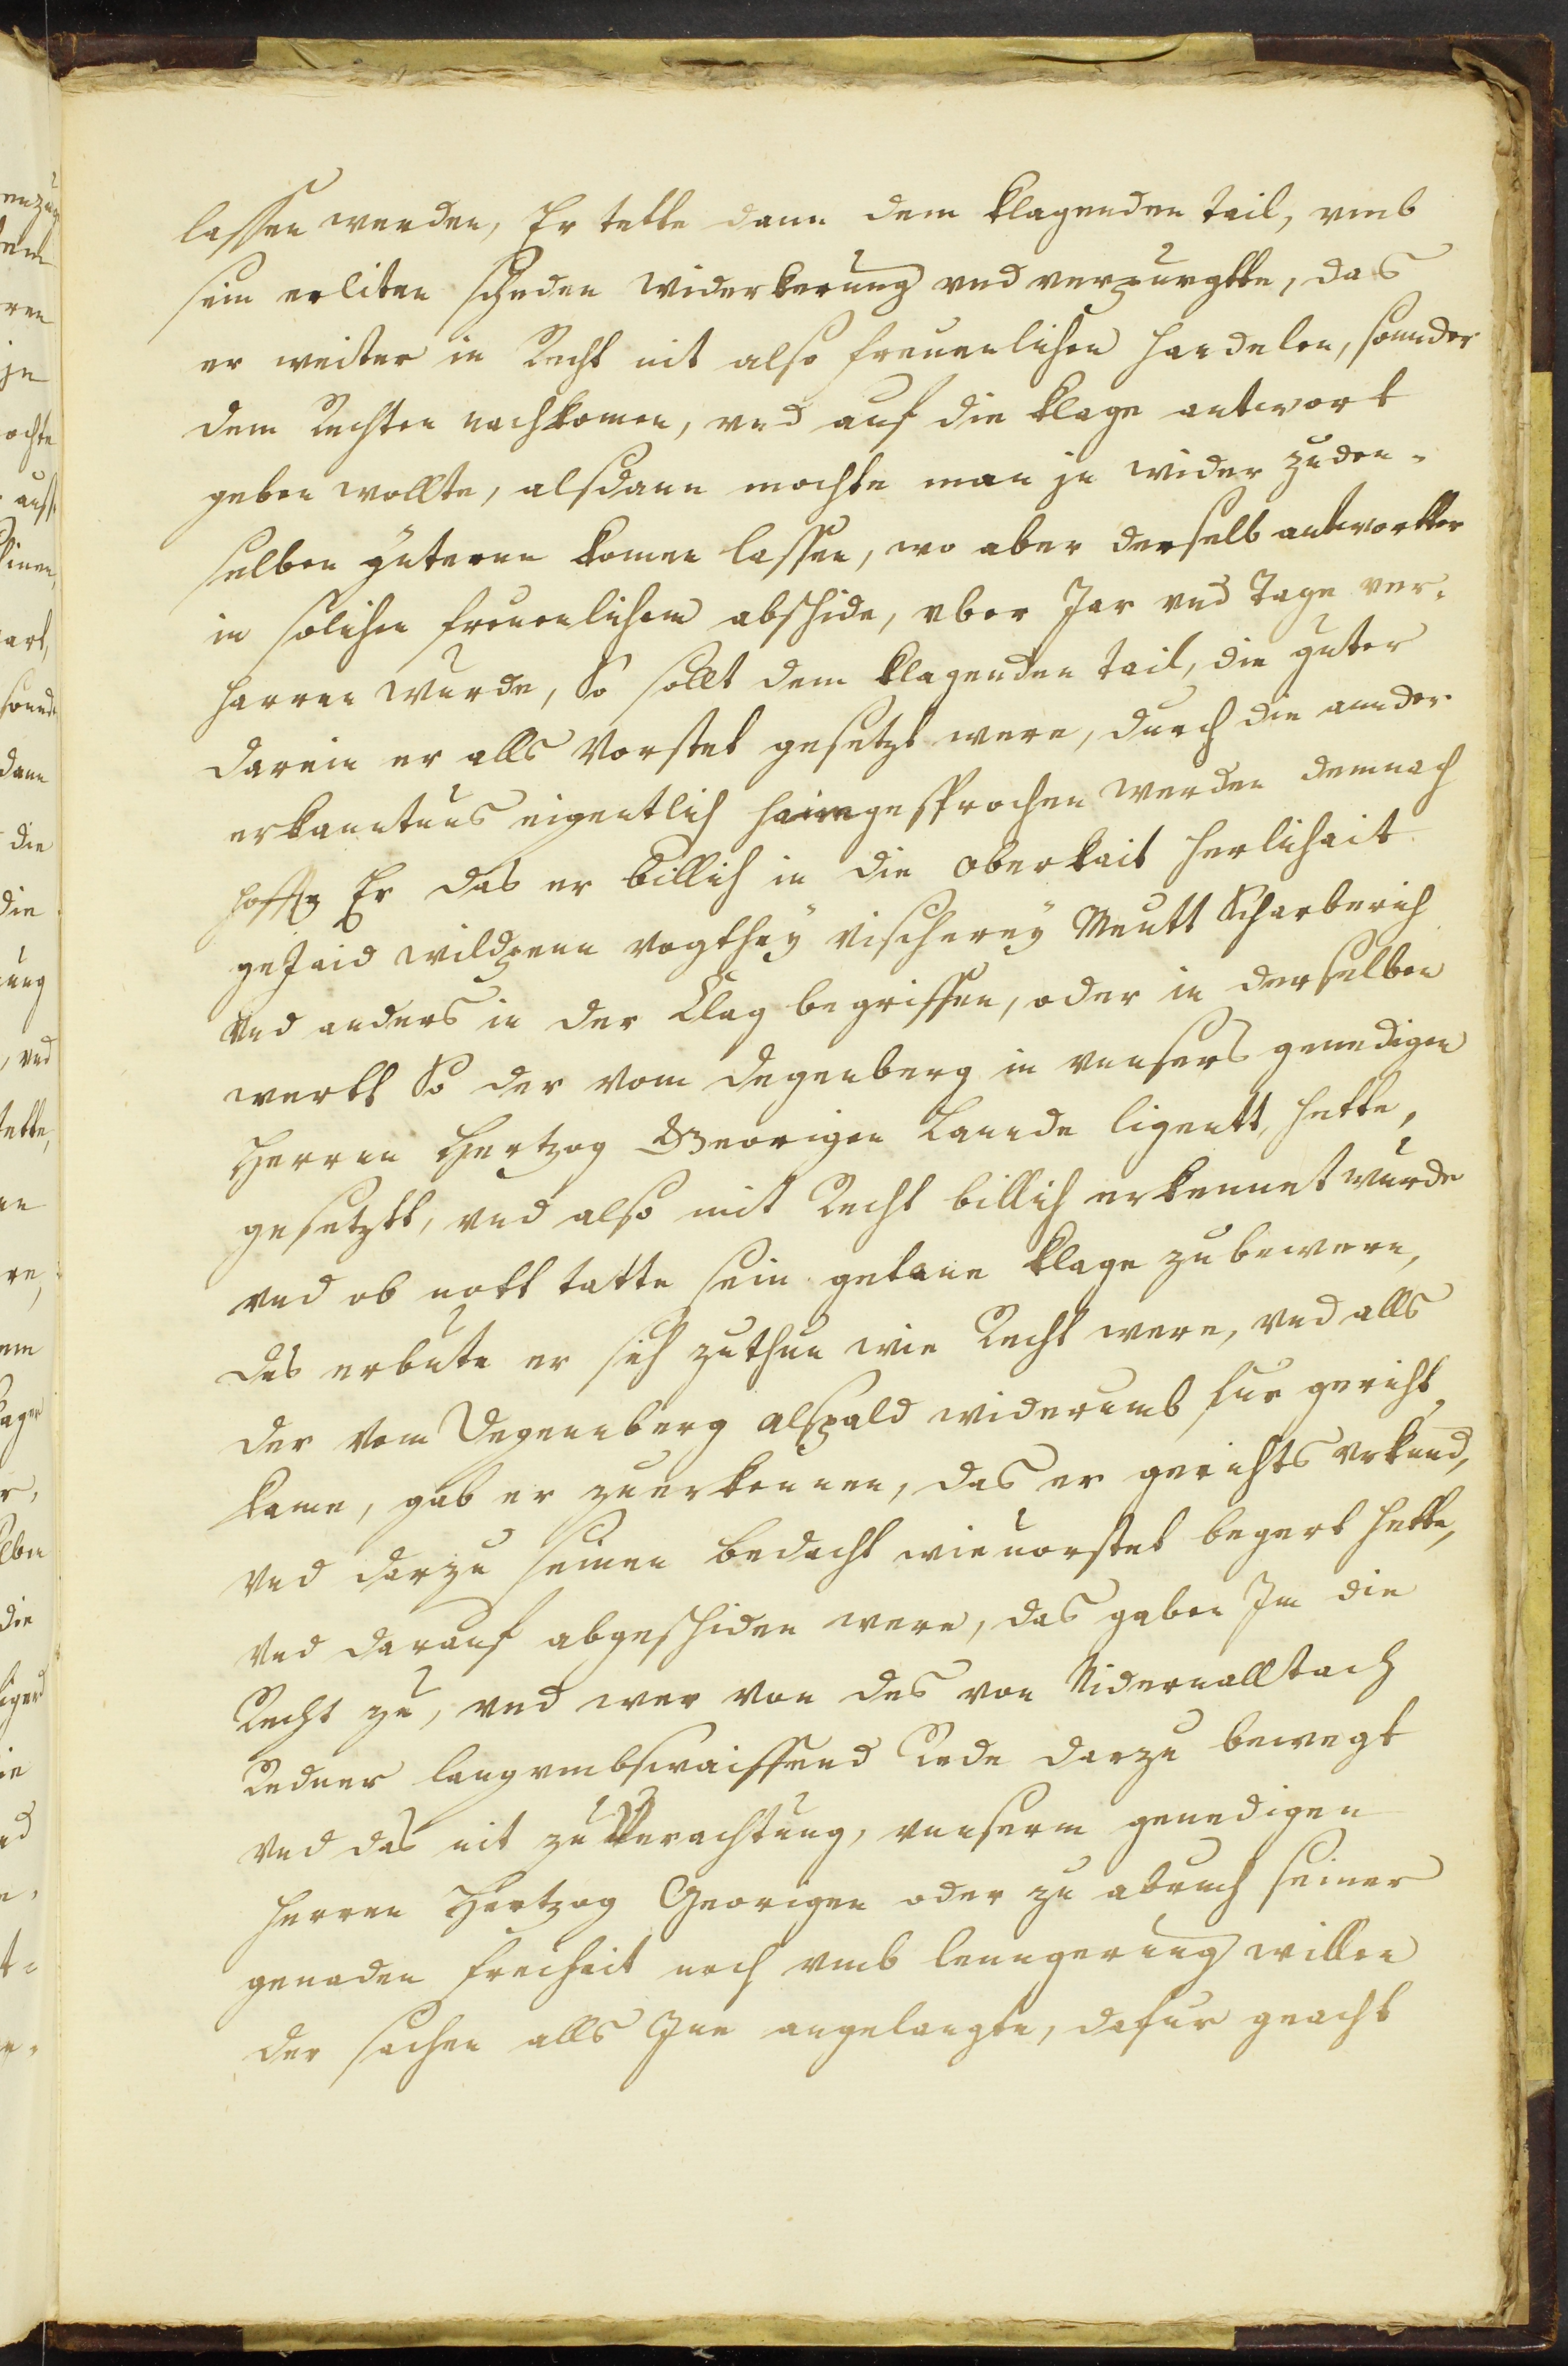 lassen werden, Er tette dann dem klagenden tail, vmb
sein erliten scheden widerkerung vnd verpurgtte, das
er weiter in Recht nit also freuenlichen handelen, sounder
dem Rechten nachkomen, vnd auf die klage antwort
geben wollte, alsdann mochte man jn wider zu den-
selben gütern komen lassen, wo aber derselb antwortter
in solichen freuenlichem abschide, vber Jar vnd Tage ver-
harren wurde, So sollt dem klagenden tail, die guter
darein er alls vorstet gesetzt were, durch die annder
erkanntnus eigentlich haimgesprochen werden demnach
hoff Er das er billich in die oberkait herlichait
gejaid wildpenn vogthey vischerey Meutt Scharberich
vnd anders in der Clag begriffen, oder in derselben
wertt So der vom degenberg in vnnsers genedigen
Herren Hertzog Georigen Lannde ligentt, hette,
gesetztt, vnd also mit Recht billich erkennet wurde
vnd ob nott tatte sein getane klage zubewern,
das erbute er sich zuthun wie Recht were, vnd alls
der vom Degennberg alspald widerumb fur gericht
kame, gab er zuerkennen, das er gerichts vrkund,
vnd darzu seinen bedacht wieuorstet begert hette,
vnd darauf abgeschiden were, das gaben Im die
Recht zu, vnd wer von des von Nidernalltach
Redner langvmbswaiffend Rede darzu bewegt
vnd das nit zu Verachtung, vnnserm genedigen
herren Hertzog Georigen oder zu abruch seiner
genaden freihait noch vmb lenngerung willen
der sachen alls Jne angelangte, dafur geacht